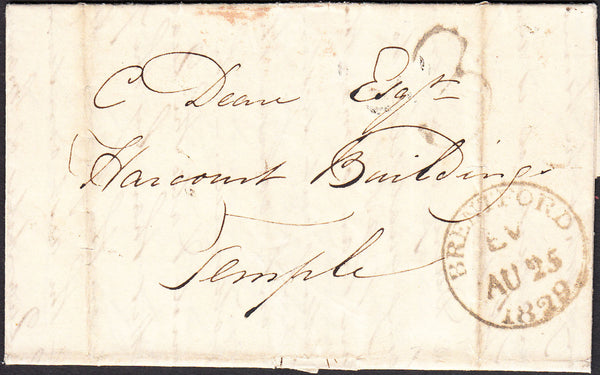 C Deane Esqre
Harcourt Buildings
Temple
BRENTFORD
EV
AU 25
1829